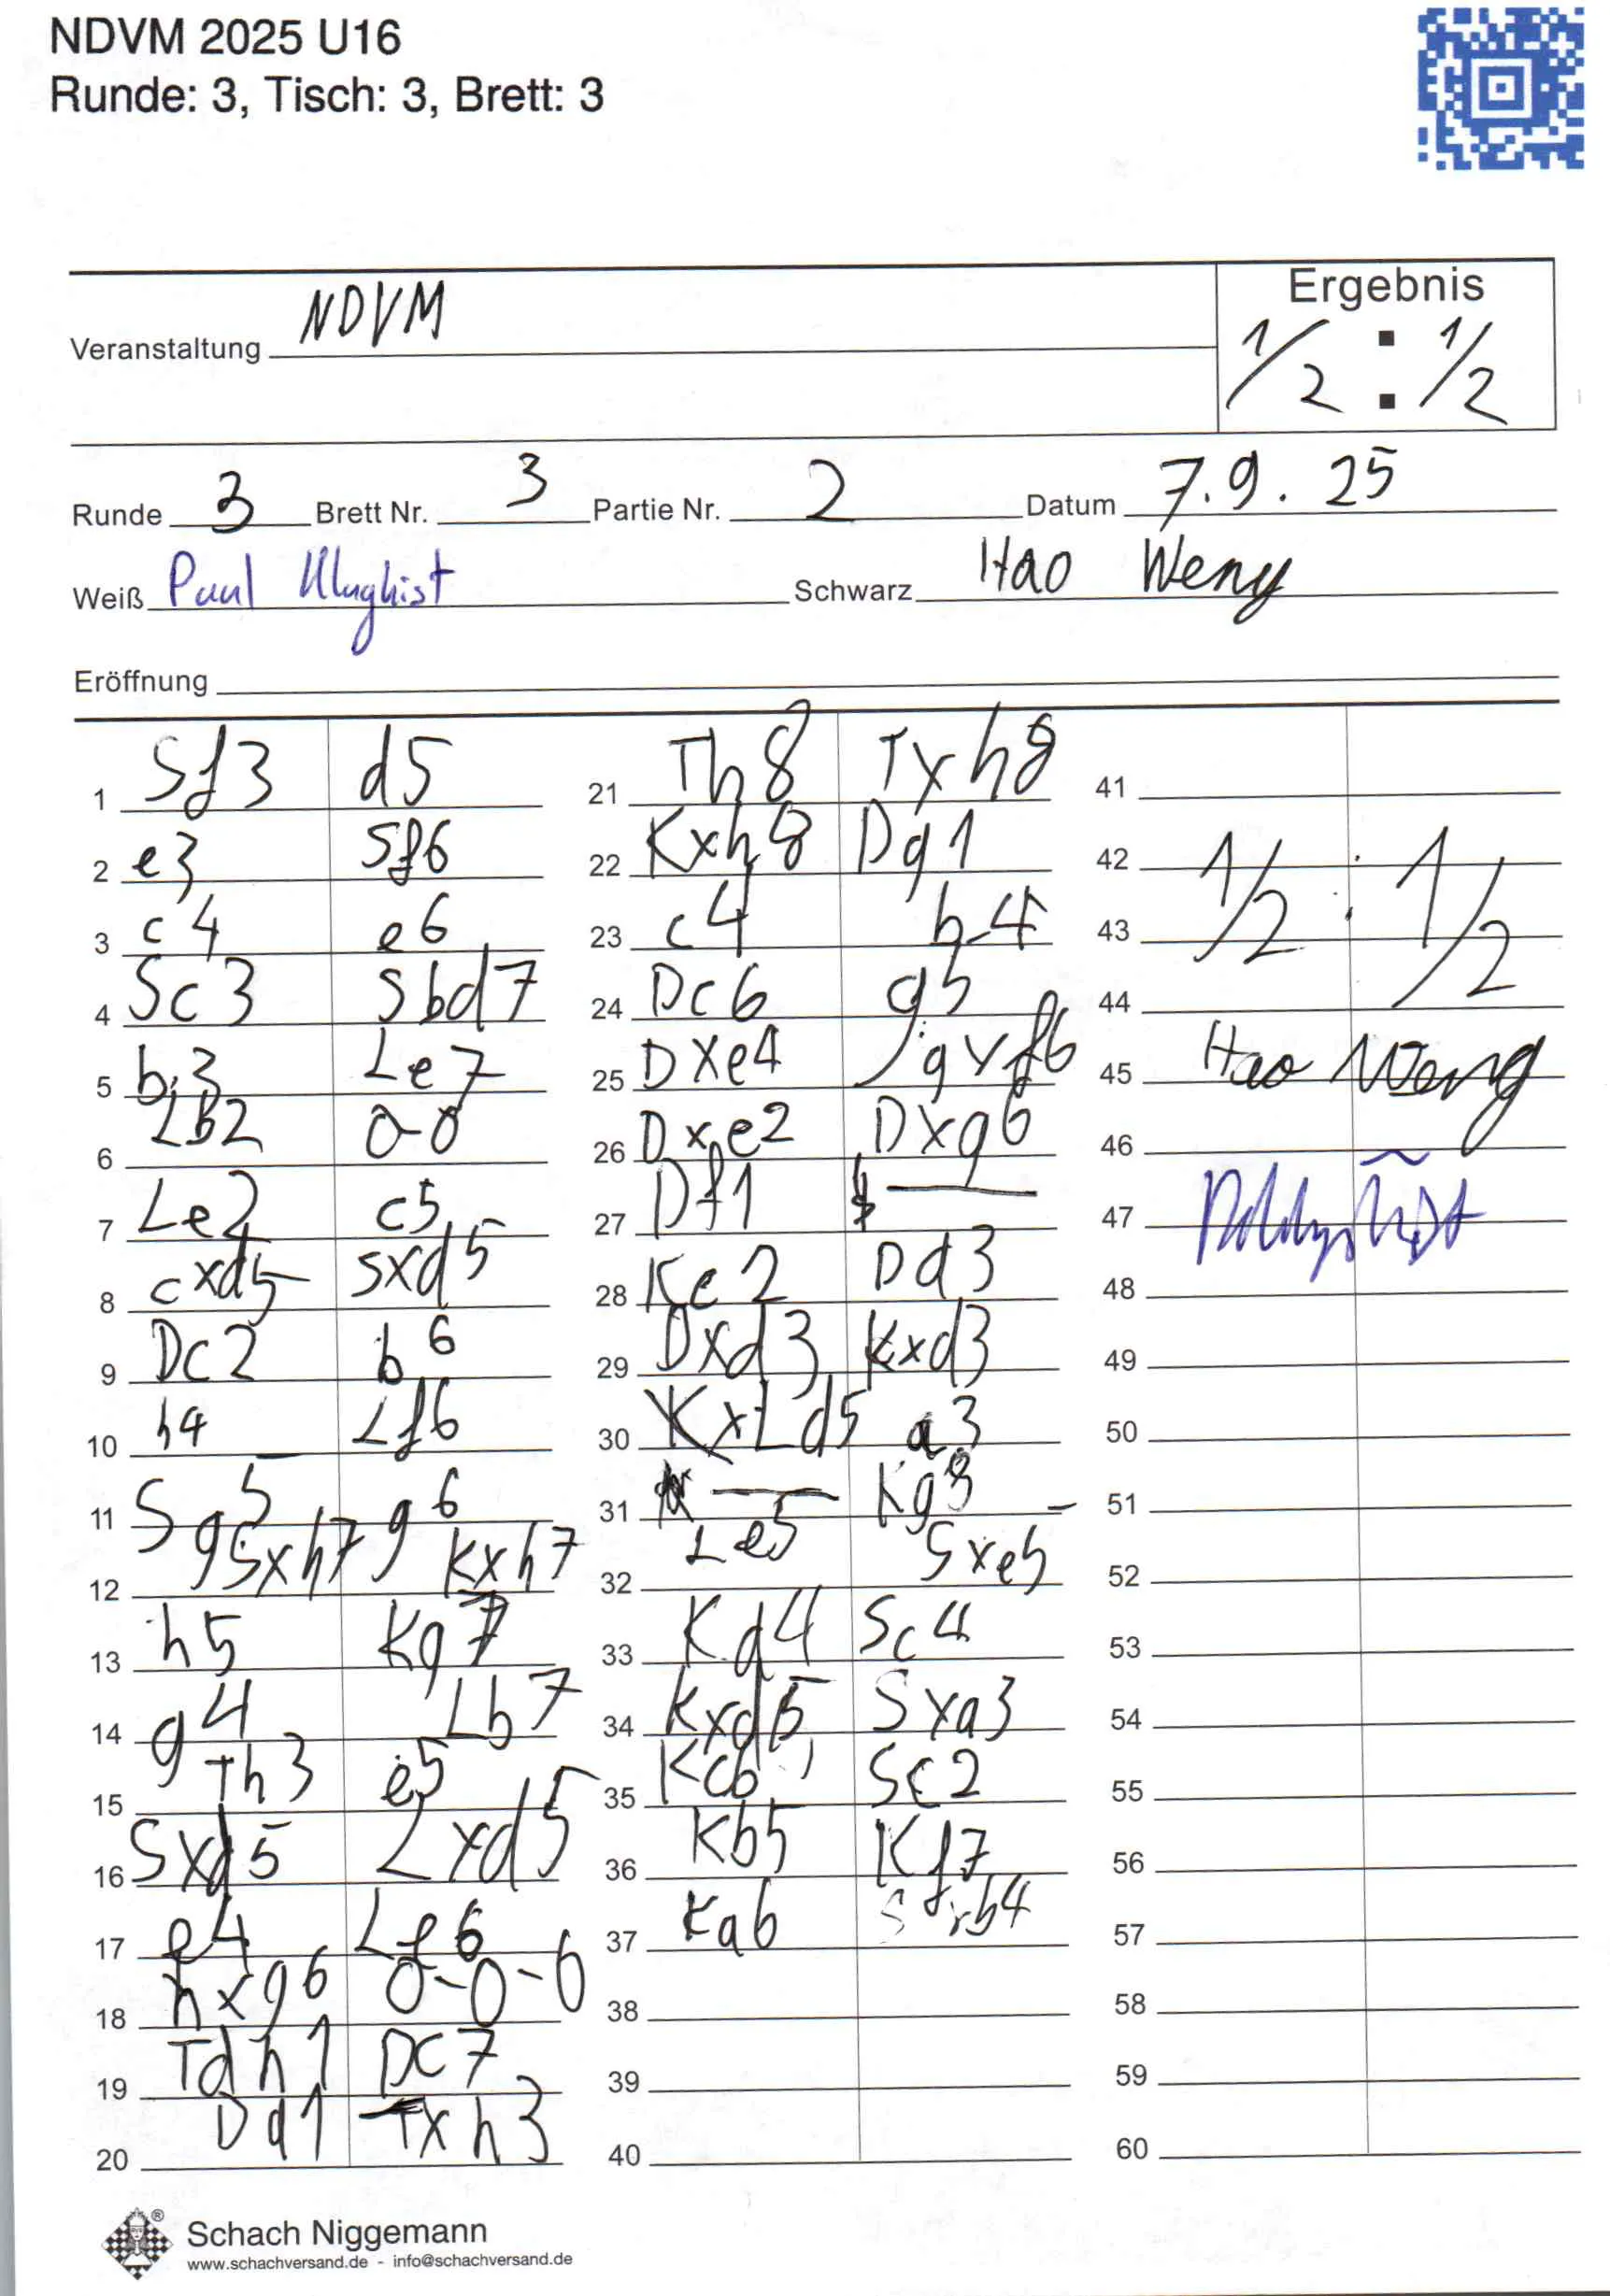 NDVM 2025 U16
Runde: 3, Tisch: 3, Brett: 3
Ergebnis
Veranstaltung NDVM
1/2 : 1/2
Runde 3 Brett Nr. 3 Partie Nr. 2 Datum 7.9.25
Weiß Paul Schwarz Hao Weng
Eröffnung
1 Sf3 d5
2 e3 Sf6
3 c4 e6
4 Sc3 Sbd7
5 b3 Le7
6 LB2 0-0
7 Le2 c5
8 cxd5 Sxd5
9 Dc2 b6
10 h4 Lf6
11 Sg5 g6
12 Sxh7 Kxh7
13 h5 Kg7
14 g4 Lb7
15 Th3 e5
16 Sxd5 Lxd5
17 e4 Le6
18 hxg6 0-0-0
19 Tdh1 DC7
20 Dd1 Txh3
21 Th8 Txh8
22 Kxh8 Dg1
23 c4 b4
24 Dc6 g5
25 Dxe4 gxf6
26 Dxe2 Dxg6
27 Df1 —
28 Ke2 Dd3
29 Dxd3 Kxd3
30 KxLd5 a3
31 — Kg8
32 Le5 Sxe5
33 Kd4 Sc4
34 Kxd5 Sxa3
35 Kc6 Sc2
36 Kb5 Kf7
37 Ka6 Sxb4
38
39
40
41
42
43 1/2 : 1/2
44
45 Hao Weng
46
47
48
49
50
51
52
53
54
55
56
57
58
59
60
Schach Niggemann
www.schachversand.de - info@schachversand.de